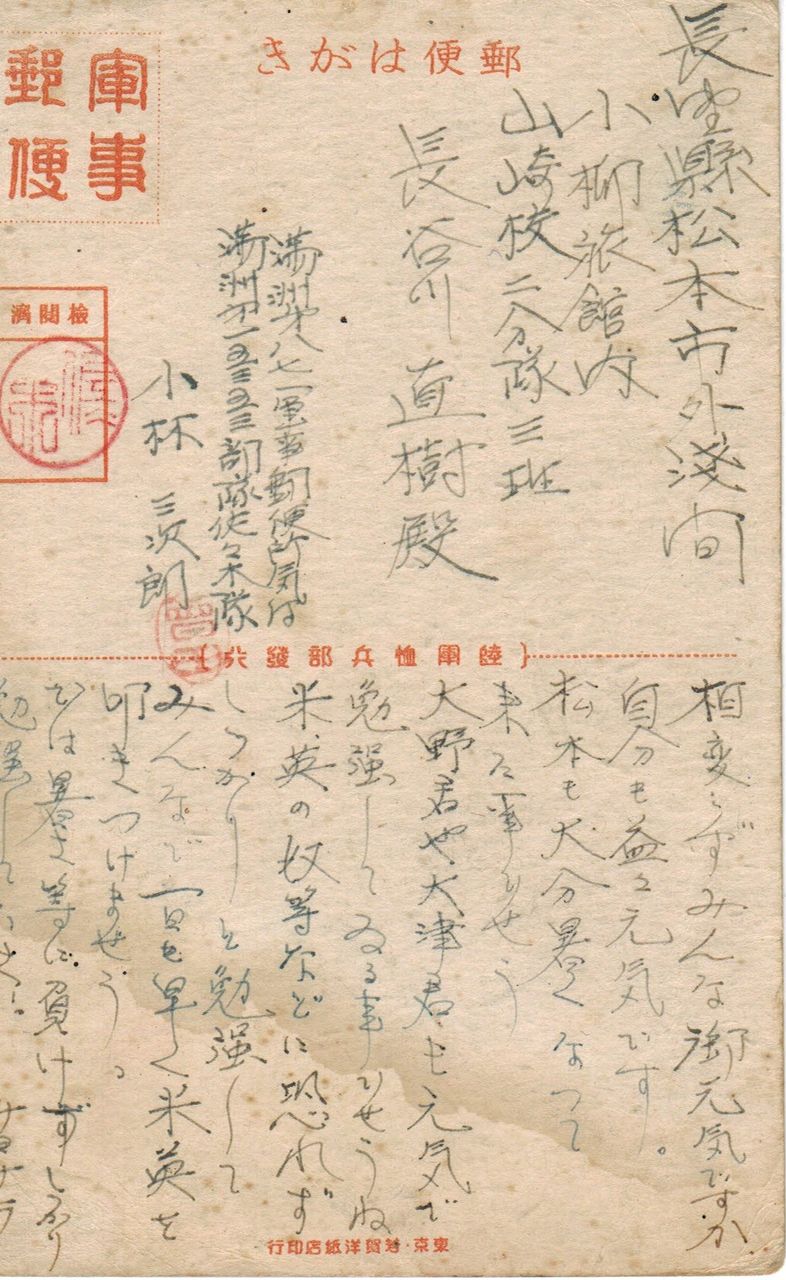 郵便はがき
軍事郵便
檢閲濟
長野縣松本市外淺间
小柳旅館内
山崎校二分隊三班
長谷川 直樹殿
満洲第八七一軍事郵便所気付
満洲第一五三五三部隊佐々木隊
小林 三次郎
陸軍恤兵部發行
相変らずみんな御元気ですか
自分も益々元気です。
松本も大分暑くなつて
来た事でせう
大野君や大津君も元気で
勉强してゐる事でせうね
米英の奴等などに恐れず
しつかりしと勉强して
みんなで一日も早く米英を
叩きつけませう。
では暑さ等に負けずしつかり
勉强して下さい。サヨナラ
東京·芳賀洋紙店印行